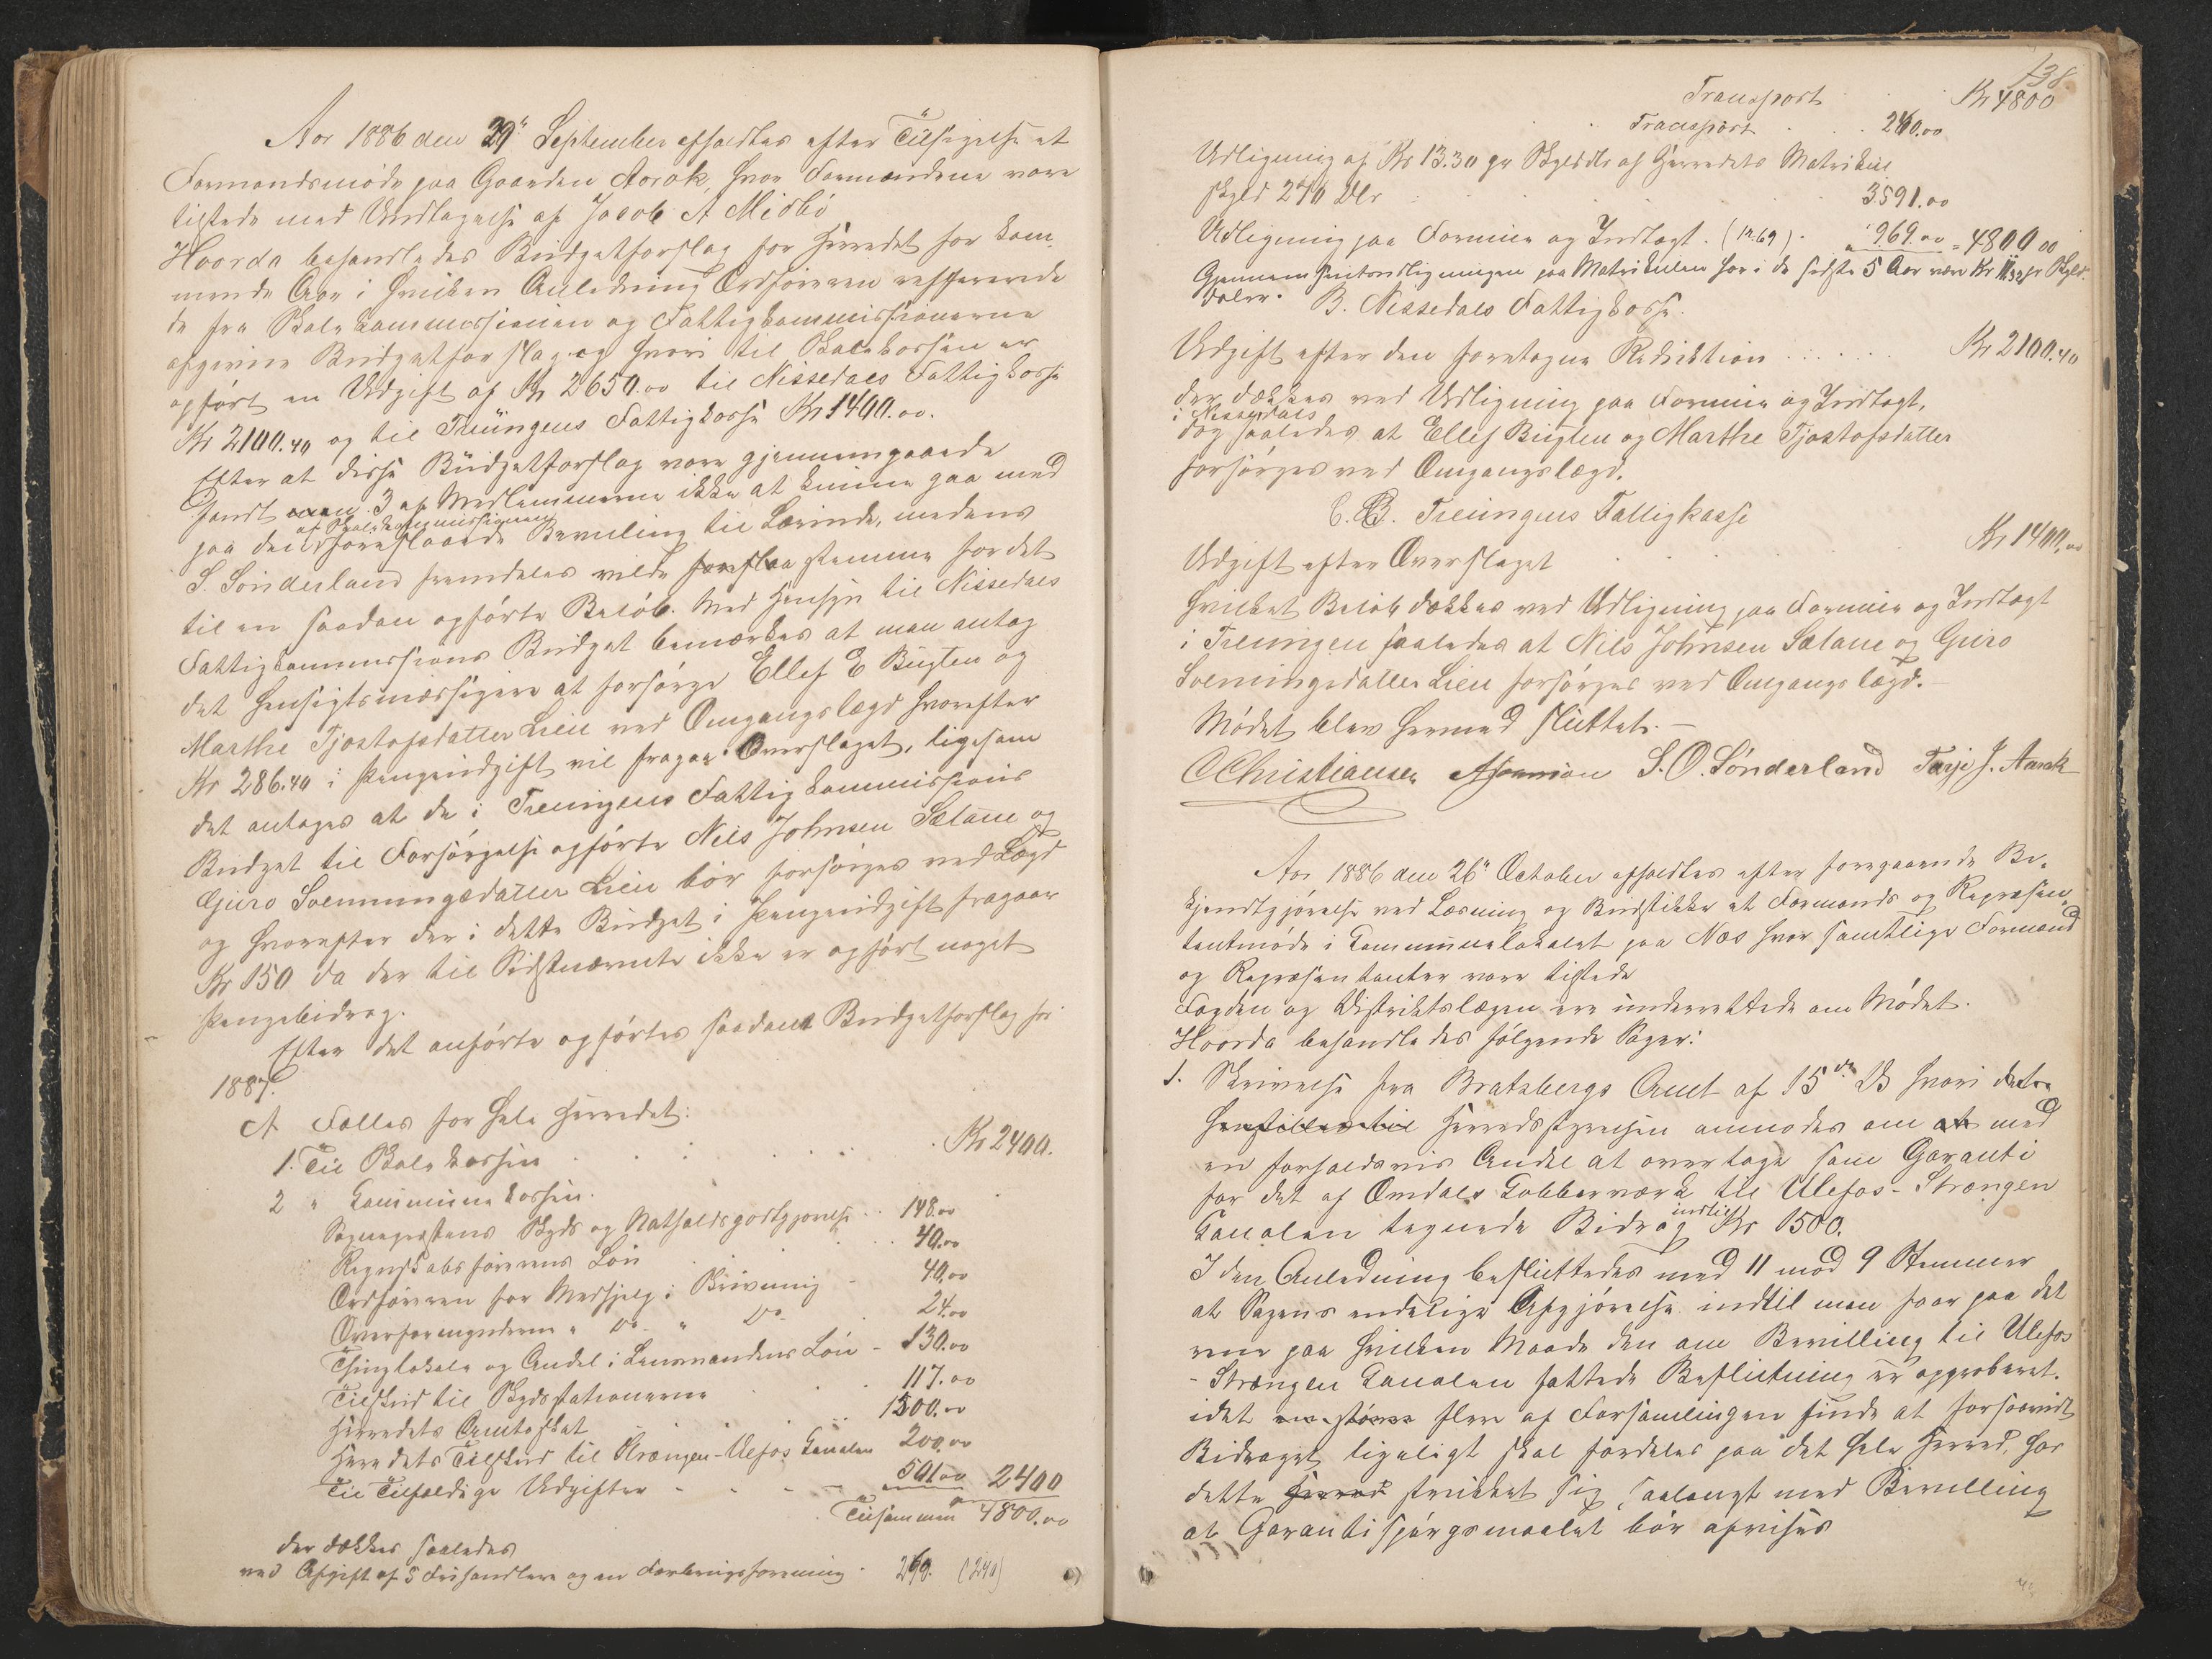 Aar 1886 den 29" September afholdtes efter Tilsigelse et
Formandsmøde paa Gaarden Aarak, hvor Formændene vare
tilstede med Undtagelse af Jacob A Midbö
Hvorda behandledes Budgetforslag for Herredet for kom¬
mende Aar i hvilken Anledning Ordføreren refererede
de fra Skolekommissionen og Fattigkommissionerne
afgivne Budgetforslag og hvori til Skolekassen er
opført en Udgift af Kr 2650.00 til Nissedals Fattigkasse
Kr 2100.40 og til Treungens Fattigkasse Kr 1400.00.
Efter at disse Budgetforslag vare gjennemgaaede
fandt 3 af Medlemmerne ikke at kunne gaa med
af Skolekommissionen
paa den foreslaaede Bevilling til Lærinde, medens
S. Sönderland fremdeles vilde foreslaa stemme for det
til en saadan opførte Beløb. Med Hensyn til Nissedals
Fattigkommissions Budget bemærkes at man antog
det hensigtsmæssigere at forsørge Ellef E Bugten og
Marthe Tjostofsdatter Lien ved Omgangslægd hvorefter
Kr 286.40 i Pengeudgift vil fragaa Overslaget, ligesom
det antages at de i Treungens Fattigkommissions
Budget til Forsørgelse opførte Nils Johnsen Sælane og
Guro Svenningsdatter Lien bør forsørges ved Lægd
og hvorefter der i dette Budget i Pengeudgift fragaar
Kr 150 da der til Sidstnævnte ikke er opført noget
Pengebidrag.
Efter det anførte opførtes saadant Budgetforslag for
1887.
A Fælles for hele Herredet:
1. Til Skolekassen Kr 2400.
2 " Kommunekassen.
Sogneprestens Skyds og Natholdsgodtgjørelse 148.00
Regnskabsførerens Løn 40.00
Ordføreren for Medhjelp i Skrivning 40.00
Overformynderne " Do " Do 24.00
Thinglokale og Andel i Lensmandens Løn - 130.00
Tilskud til Skydsstationerne 117.00
Herredets Amtsskat 1300.00
Herredets Tilskud til Strængen-Ulefos Kanalen 200.00
Til Tilfældige Udgifter 501.00 2400
Tilsammen 4800.00
der dækkes saaledes
ved Afgift af 5 Frihandlere og en Forbrugsforening 240. (240)
138.
Transport Kr 4800
Transport 240.00
Udligning af Kr 13.30 pr Skylddlr af Herredets Matrikul
skyld 270 Dlr 3591.00
Udligning paa Formue og Indtægt. 969.00 = 4800 00
Gjennemsnitsudligningen paa Matrikulen har i de sidste 5 Aar være Kr pr Skyld
daler.
B. Nissedals Fattigkasse.
Udgift efter den foretagne Reduktion Kr 2100.40
der dækkes ved Udligning paa Formue og Indtægt,
i Nissedals
dog saaledes at Ellef Bugten og Marthe Tjostofsdatter
forsørges ved Omgangslægd.
C. Treungens Fattigkasse
Udgift efter Overslaget Kr 1400.00
hvilket Beløb dækkes ved Udligning paa Formue og Indtægt
i Treungen saaledes at Nils Johnsen Sælane og Guro
Svenningsdatter Lien forsørges ved Omgangslægd.
Mødet blev hermed sluttet.—
CChristiansen S. O. Sönderland Tarje J. Aarak
Aar 1886 den 26" October afholdtes efter foregaaende Be¬
kjendtgjørelse ved Læsning og Budstikke et Formands og Repræsen¬
tantmøde i Kommunelokalet paa Næs hvor samtlige Formænd
og Repræsentanter vare tilstede
Fogden og Distriktslægen ere underrettede om Mødet.
Hvorda behandledes følgende Sager:
1. Skrivelse fra Bratsbergs Amt af 15de ds hvori dette
henstilles til Herredsstyrelsen anmodes om at med
en forholdsvis Andel at overtage som Garanti
for det af Omdals Kobberværk til Ulefos-Strængen
Kanalen tegnede Bidrag indtil Kr 1500.
I den Anledning besluttedes med 11 mod 9 Stemmer
at Sagens endelige Afgjørelse indtil man faar paa det
rene paa hvilken Maade den om Bevilling til Ulefos
- Strængen Kanalen fattede Beslutning er approberet.
idet en større flere af Forsamlingen finde at forsaavidt
Bidraget ligeligt skal fordeles paa det hele Herred, har
dette Herred strukket sig saalangt med Bevilling
at Garantispørgsmaalet bør afvises